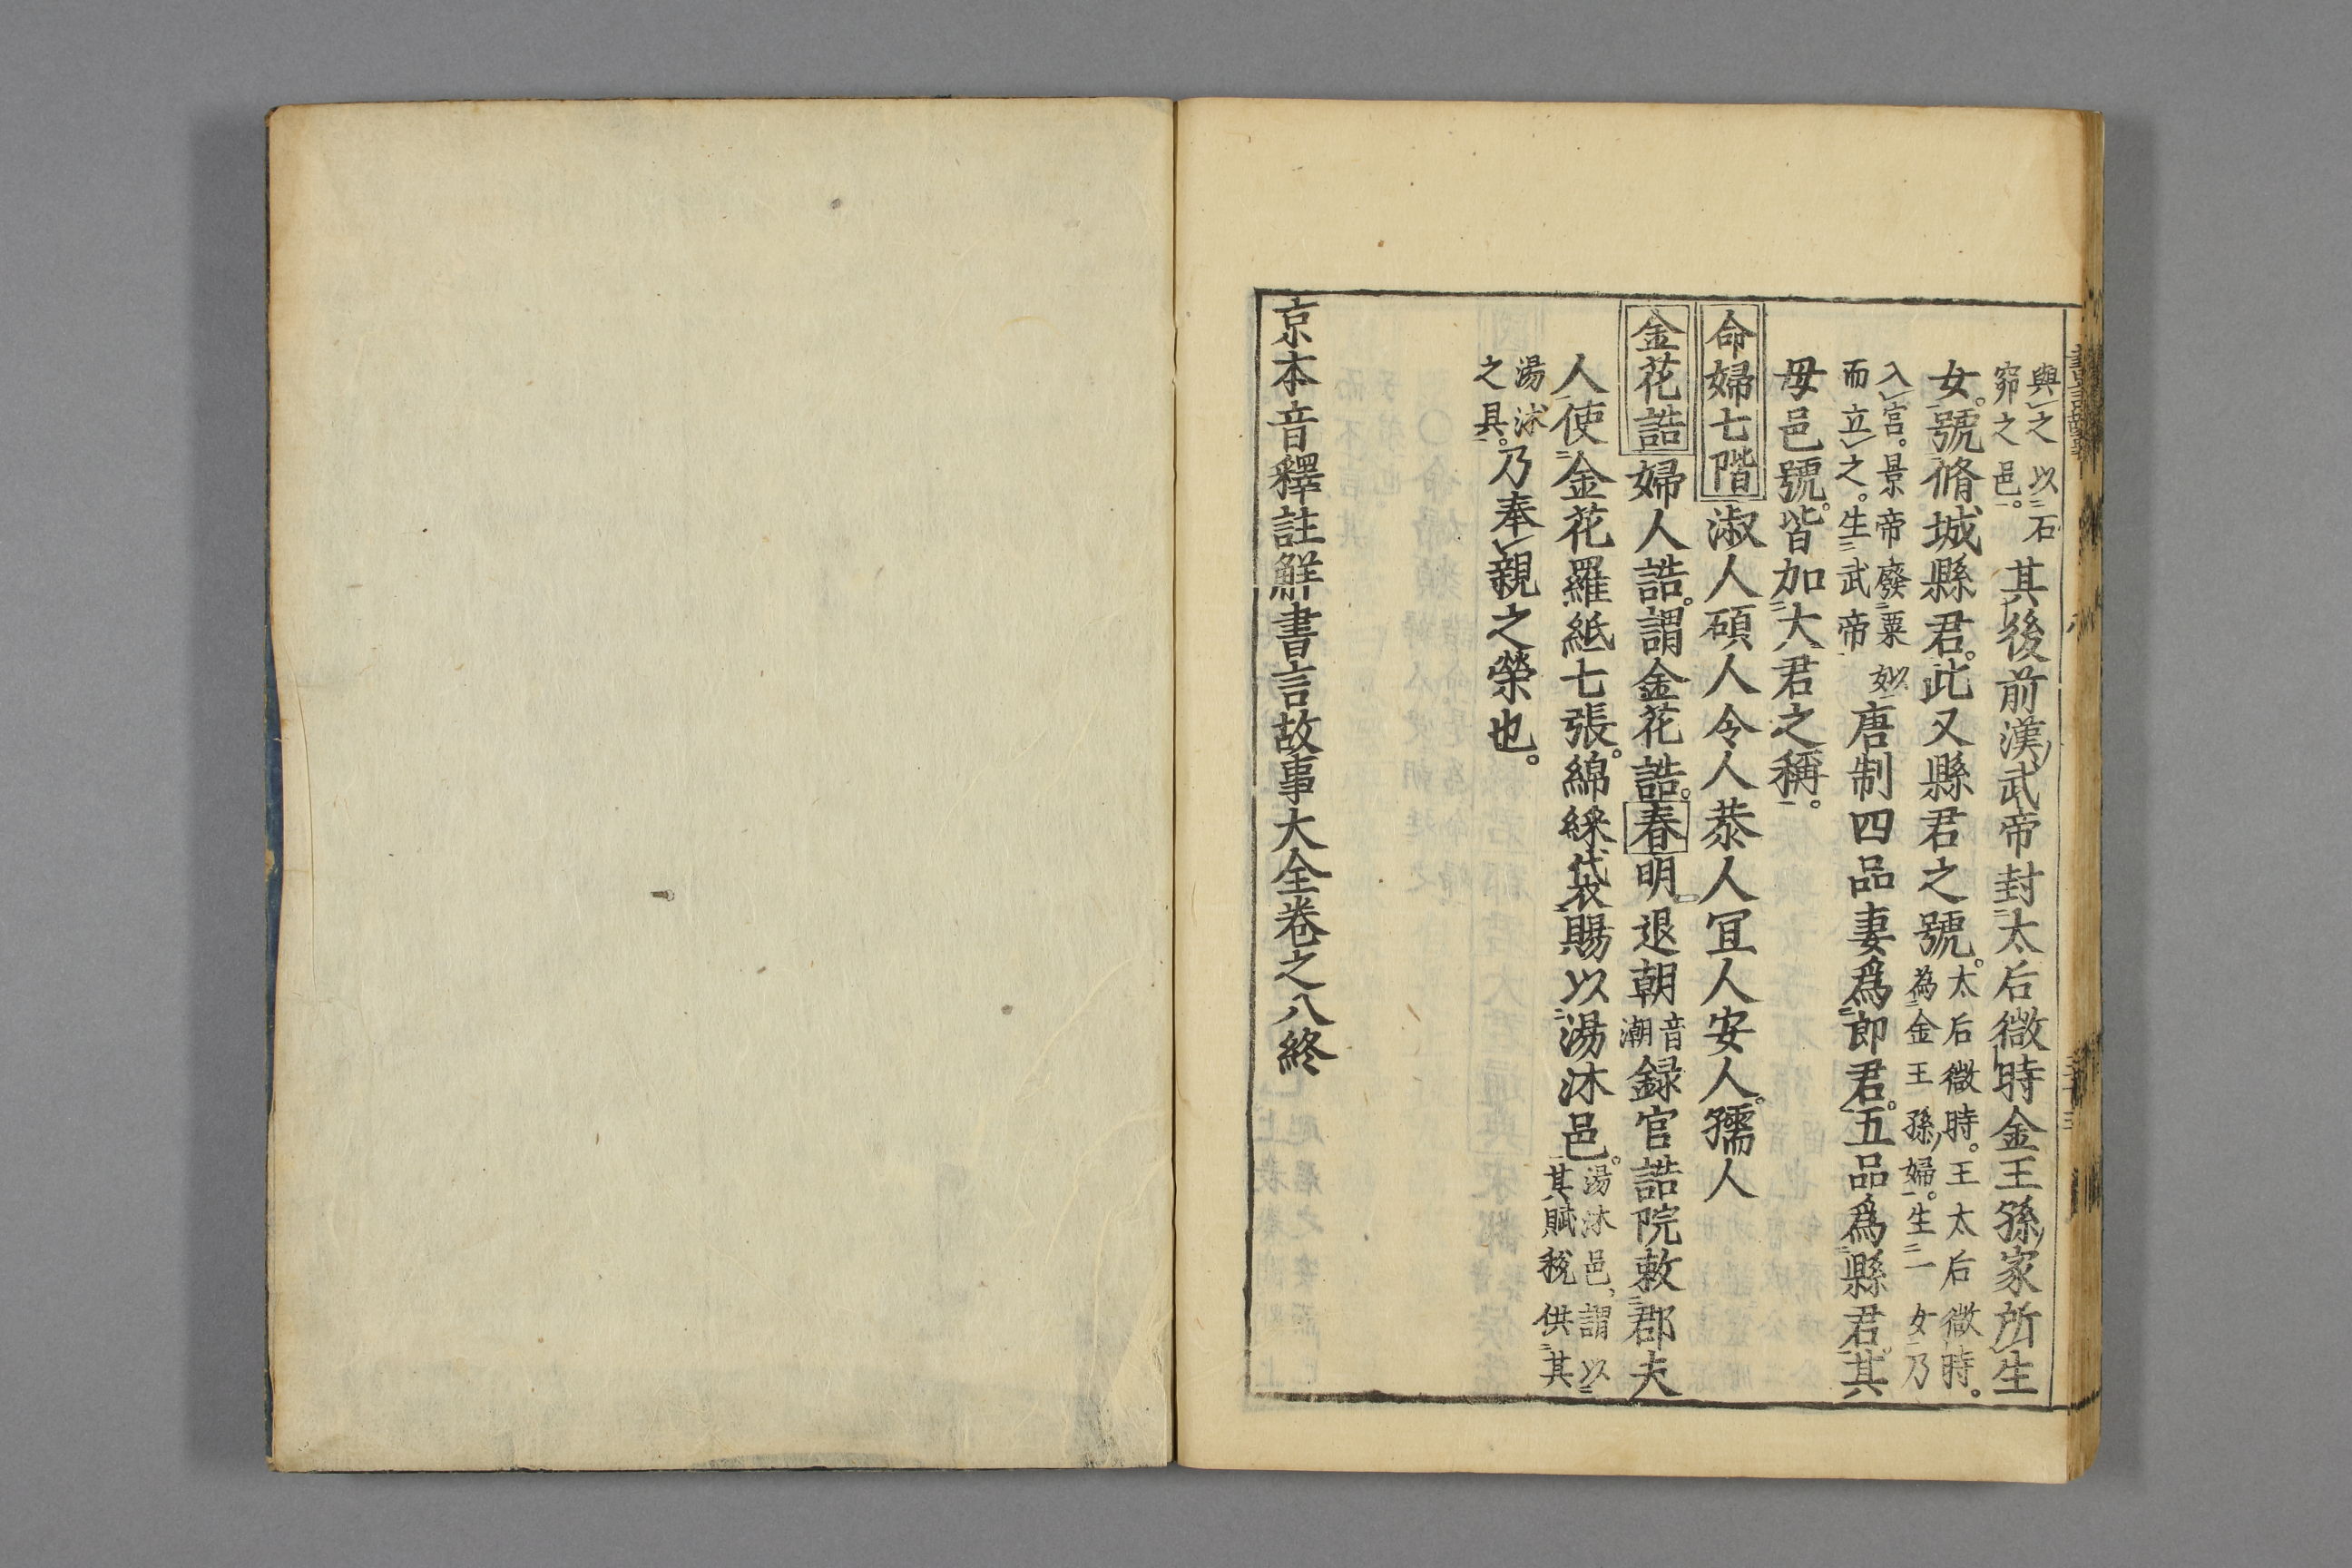 與之以石
窌之邑。其後前漢武帝封太后微時金王孫家所生
女。號脩城縣君。此又縣君之號。太后微時。王太后微時。
為金王孫婦。生一女乃
入宮。景帝廢栗妃以
而立之。生武帝唐制四品妻爲郎君。五品爲縣君。其
母邑號。皆加大君之稱。
命婦七階淑人碩人令人恭人冝人安人。孺人
金花誥婦人誥。謂金花誥。春明退朝音潮録官誥院敕郡夫
人使金花羅紙七張。綿綵袋賜以湯沐邑。湯沐邑、謂以
其賦稅供其
湯沐
之具。乃奉親之榮也。
京本音釋註觧書言故事大全卷之八終